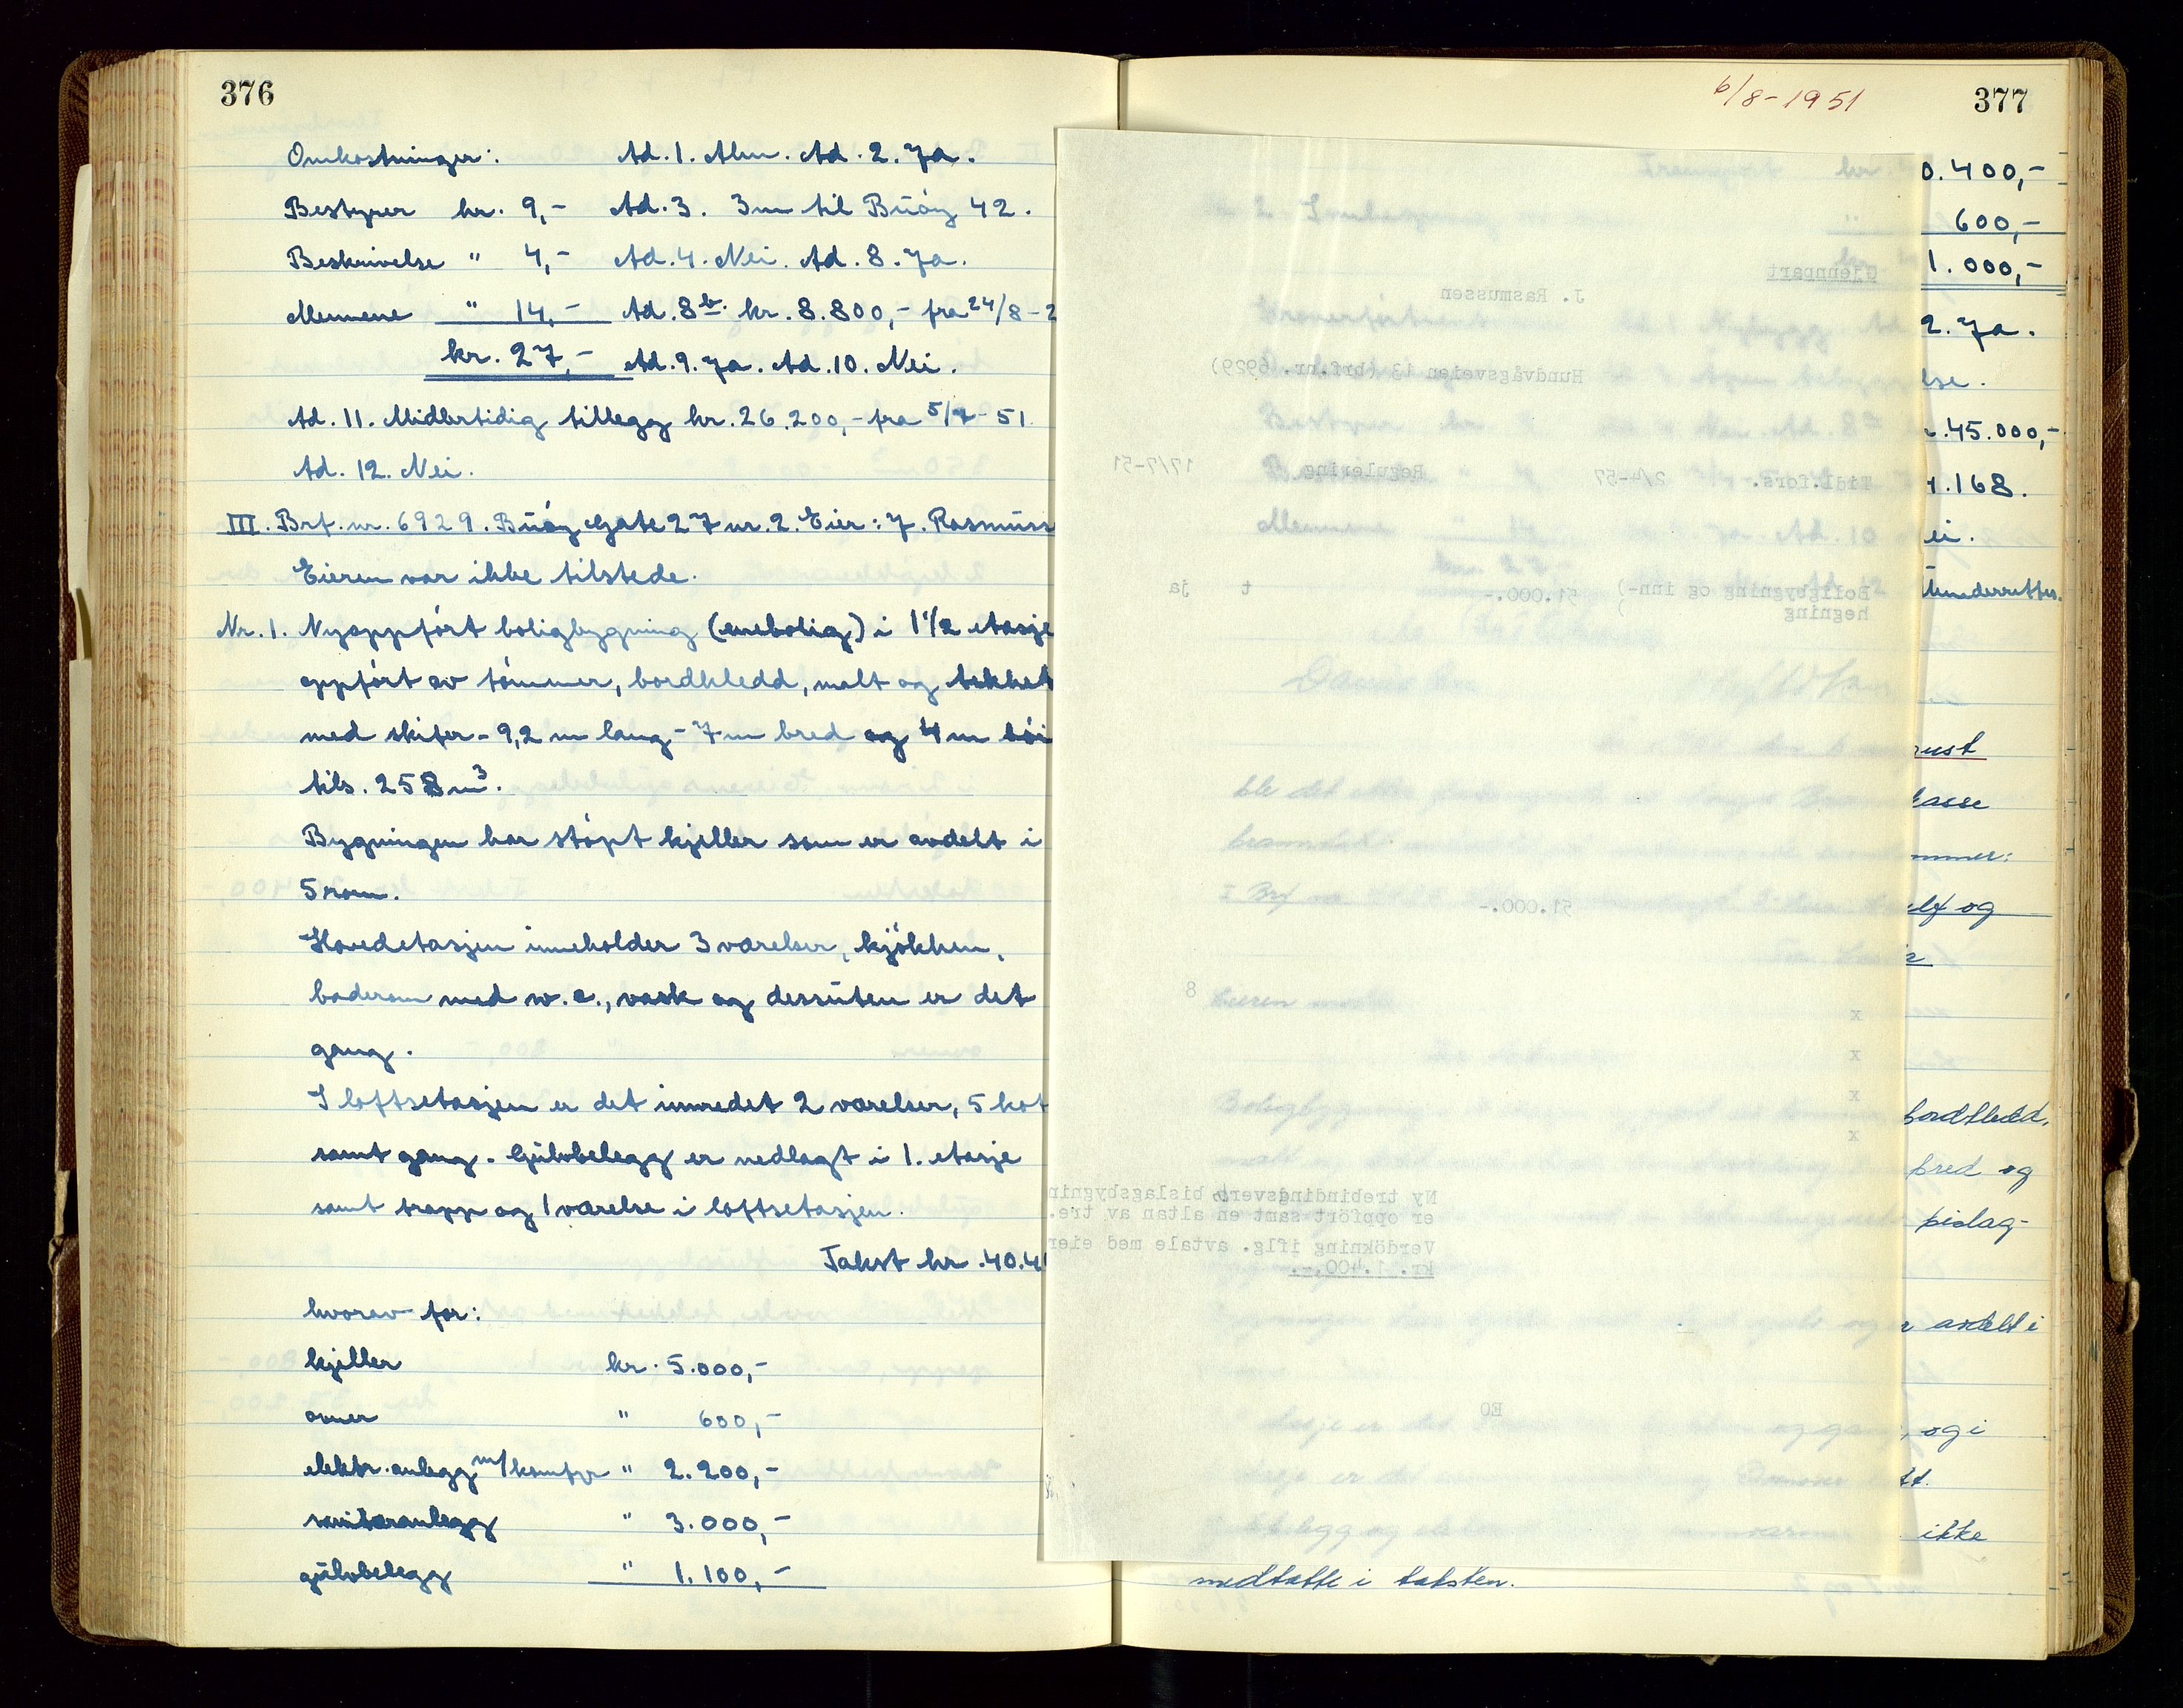 376
Omkostninger: Ad. 1. Alm. Ad. 2. Ja.
Bestyrer kr. 9,- Ad. 3. 3m til Buøy 42.
Beskrivelse " 4,- Ad. 4. Nei. Ad. 8. Ja.
Mennene " 14,- Ad. 8b. kr. 8.800,- fra 24/8-2
kr. 27,- Ad. 9. Ja. Ad. 10. Nei.
Ad. 11. Midlertidig tillegg kr. 26.200,- fra 5/7-51
Ad. 12. Nei.
III. Brf. nr. 6929. Buøy Gate 27 nr. 2. Eier: J. Rasmuss
Eieren var ikke tilstede.
Nr. 1. Nyoppført boligbygning (enebolig) i 1 1/2 etasje
oppført av tømmer, bordkledd, malt og tekket
med skifer - 9,2 m lang - 7 m bred og 4 m høi
tils. 258 m³.
Bygningen har støpt kjeller som er avdelt i
5 rom.
Hovedetasjen inneholder 3 værelser, kjøkken,
baderom med w.c., vask og dessuten er det
gang.
I loftsetasjen er det innredet 2 værelser, 5 kot
samt gang. Gulvbelegg er nedlagt i 1. etasje
samt trapp og 1 værelse i loftsetasjen.
Takst kr. 40.4
hvorav for:
kjeller kr. 5.000,-
ovner " 600,-
elektr. anlegg m/komfyr " 2.200,-
sanitæranlegg " 3.000,-
gulvbelegg " 1.100,-
6/8-1951
377
0.400,-
600,-
1.000,-
2. Ja.
lse.
45.000,-
168.
ei.
Gjennpart
J. Rasmussen
Hundvågsveien 13 (brf.nr. 6929)
Midl.fors. 2/4-57 Regulering 17/7-51
Boligbygning og inn-) 51.000.- t ja
hegning
51.000.-
8
x
x
x
x
Ny trebindingsverks bislagsbygnin
er oppført samt en altan av tre.
Verdökning iflg. avtale med eier
kr. 1.400.-.
EO
ust
asse
mmer:
og
bordkledd,
bred og
bislag-
avdelt i
, og i
ikke
medtatt i taksten.